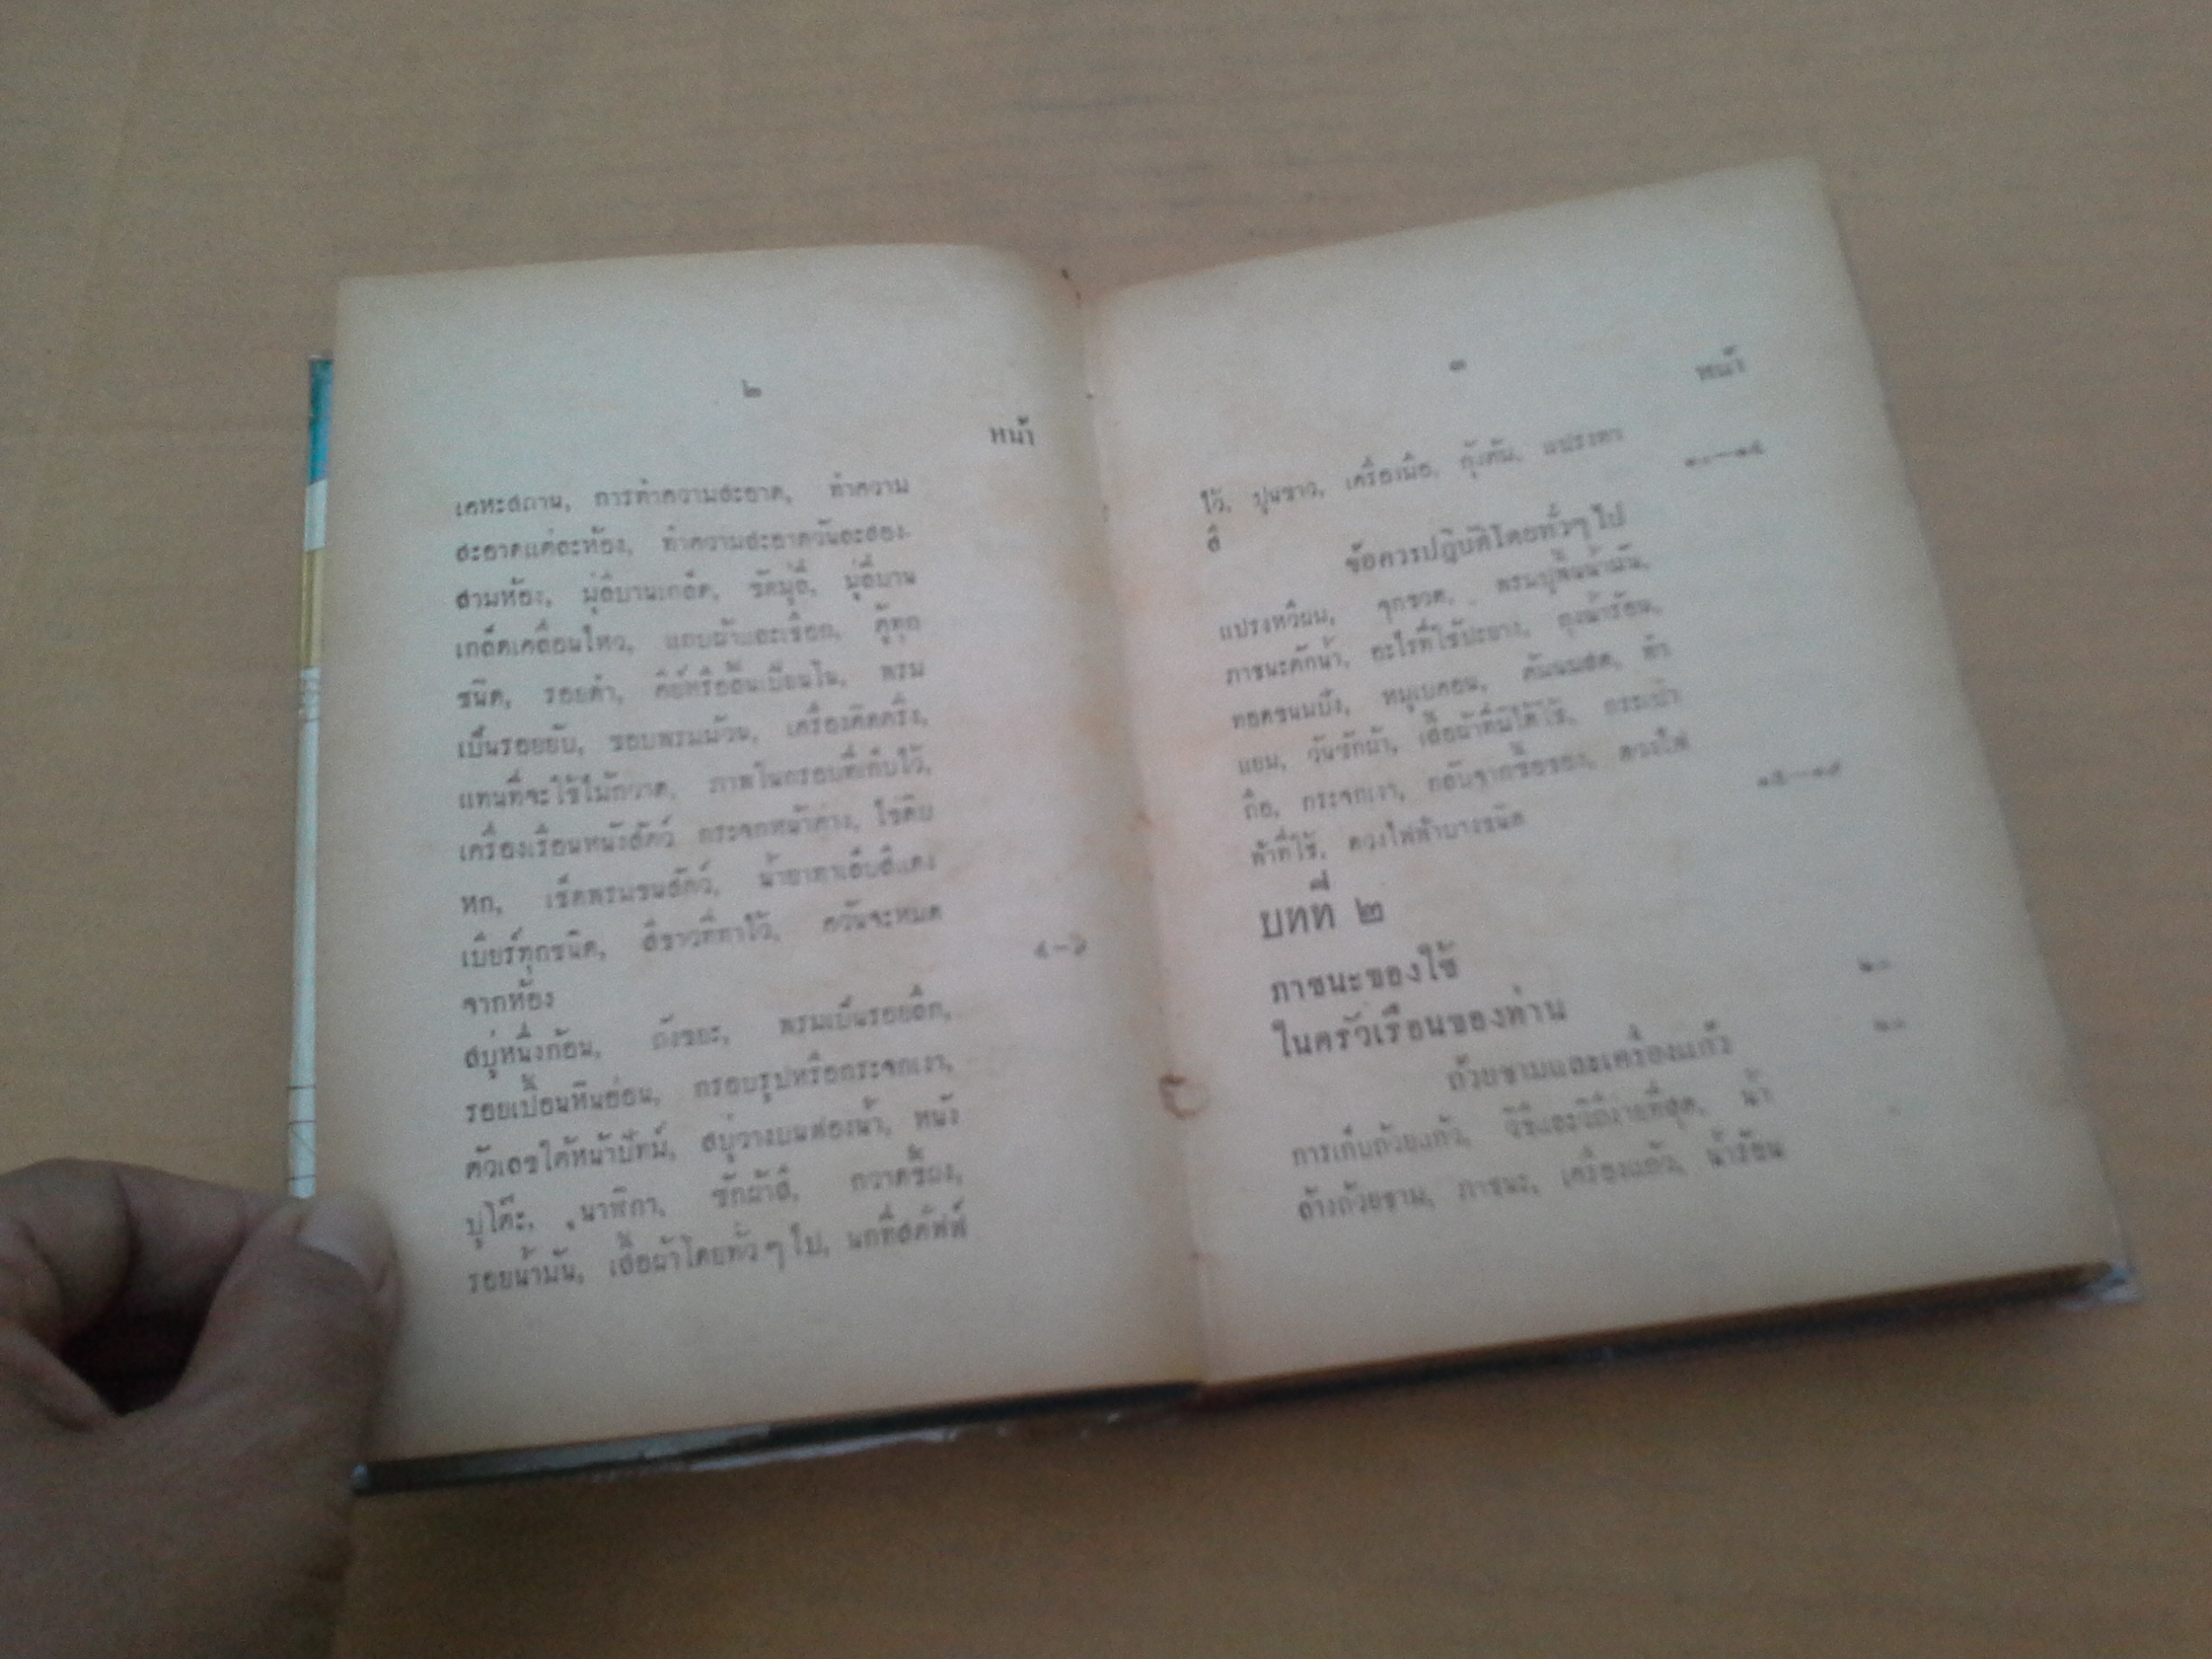 ๒
หน้า
เคหะสถาน, การทำความสะอาด, ทำความ
สะอาดแต่ละห้อง, ทำความสะอาดวันละสอง-
สามห้อง, มู่ลี่บานเกล็ด, ขัดมู่ลี่, มู่ลี่บาน
เกล็ดเคลื่อนไหว, แถบผ้าและเชือก, ตู้ทุก
ชนิด, รอยดำ, พรม
เป็นรอยยับ, ขอบพรมม้วน, เครื่องติดตรึง,
แทนที่จะใช้ไม้กวาด, ภาพในกรอบที่เก็บไว้,
เครื่องเรือนหนังสัตว์ กระจกหน้าต่าง, ไข่ดิบ
หก, เช็ดพรมขนสัตว์, น้ำยาทาเล็บสีแดง
เบียร์ทุกชนิด, สีขาวที่ทาไว้, ควันจะหมด
จากห้อง ๔-๖
สบู่หนึ่งก้อน, ถังขยะ, พรมเป็นรอยลึก,
รอยเปื้อนหินอ่อน, กรอบรูปหรือกระจกเงา,
ตัวเลขใต้หน้าปัทม์, สบู่วางบนฟองน้ำ, หนัง
ปูโต๊ะ, นาฬิกา, ซักผ้าสี, กวาดขี้ผง,
รอยน้ำมัน, เสื้อผ้าโดยทั่วๆ ไป, นกที่สตัฟฟ์
๓
หน้า
ไว้, ปูนขาว, เครื่องมือ, แปรงทา
สี ๑๐—๑๔
ข้อควรปฏิบัติโดยทั่วๆ ไป
แปรงหวีผม, จุกขวด, พรมปูพื้นน้ำมัน,
ภาชนะตักน้ำ, อะไรที่ใช้ปะยาง, ถุงน้ำร้อน,
ทอดขนมปัง, หมูเบคอน, ต้มนมสด, ทำ
แยม, วันซักผ้า, เสื้อผ้าที่มิได้ใช้, กระเป๋า
ถือ, กระจกเงา, กลับจากซื้อของ, ดวงไฟ
ฟ้าที่ใช้, ดวงไฟฟ้าบางชนิด ๑๕—๑๙
บทที่ ๒
ภาชนะของใช้
ในครัวเรือนของท่าน ๒๐
ถ้วยชามและเครื่องแก้ว ๒๐
การเก็บถ้วยแก้ว, วิธีและวิถีง่ายที่สุด, น้ำ
ล้างถ้วยชาม, ภาชนะ, เครื่องแก้ว, น้ำร้อน